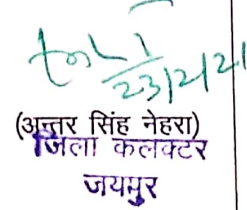 23/2/21
(अन्तर सिंह नेहरा)
जिला कलक्टर
जयपुर